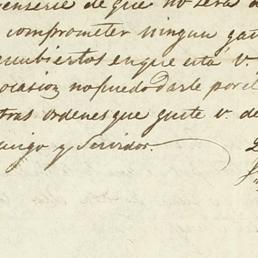 de que no será
comprometer ningun
cubiertos en que está v.
ocasion no puedo darle por el
tras ordenes que guste v. de
amigo y Servidor.